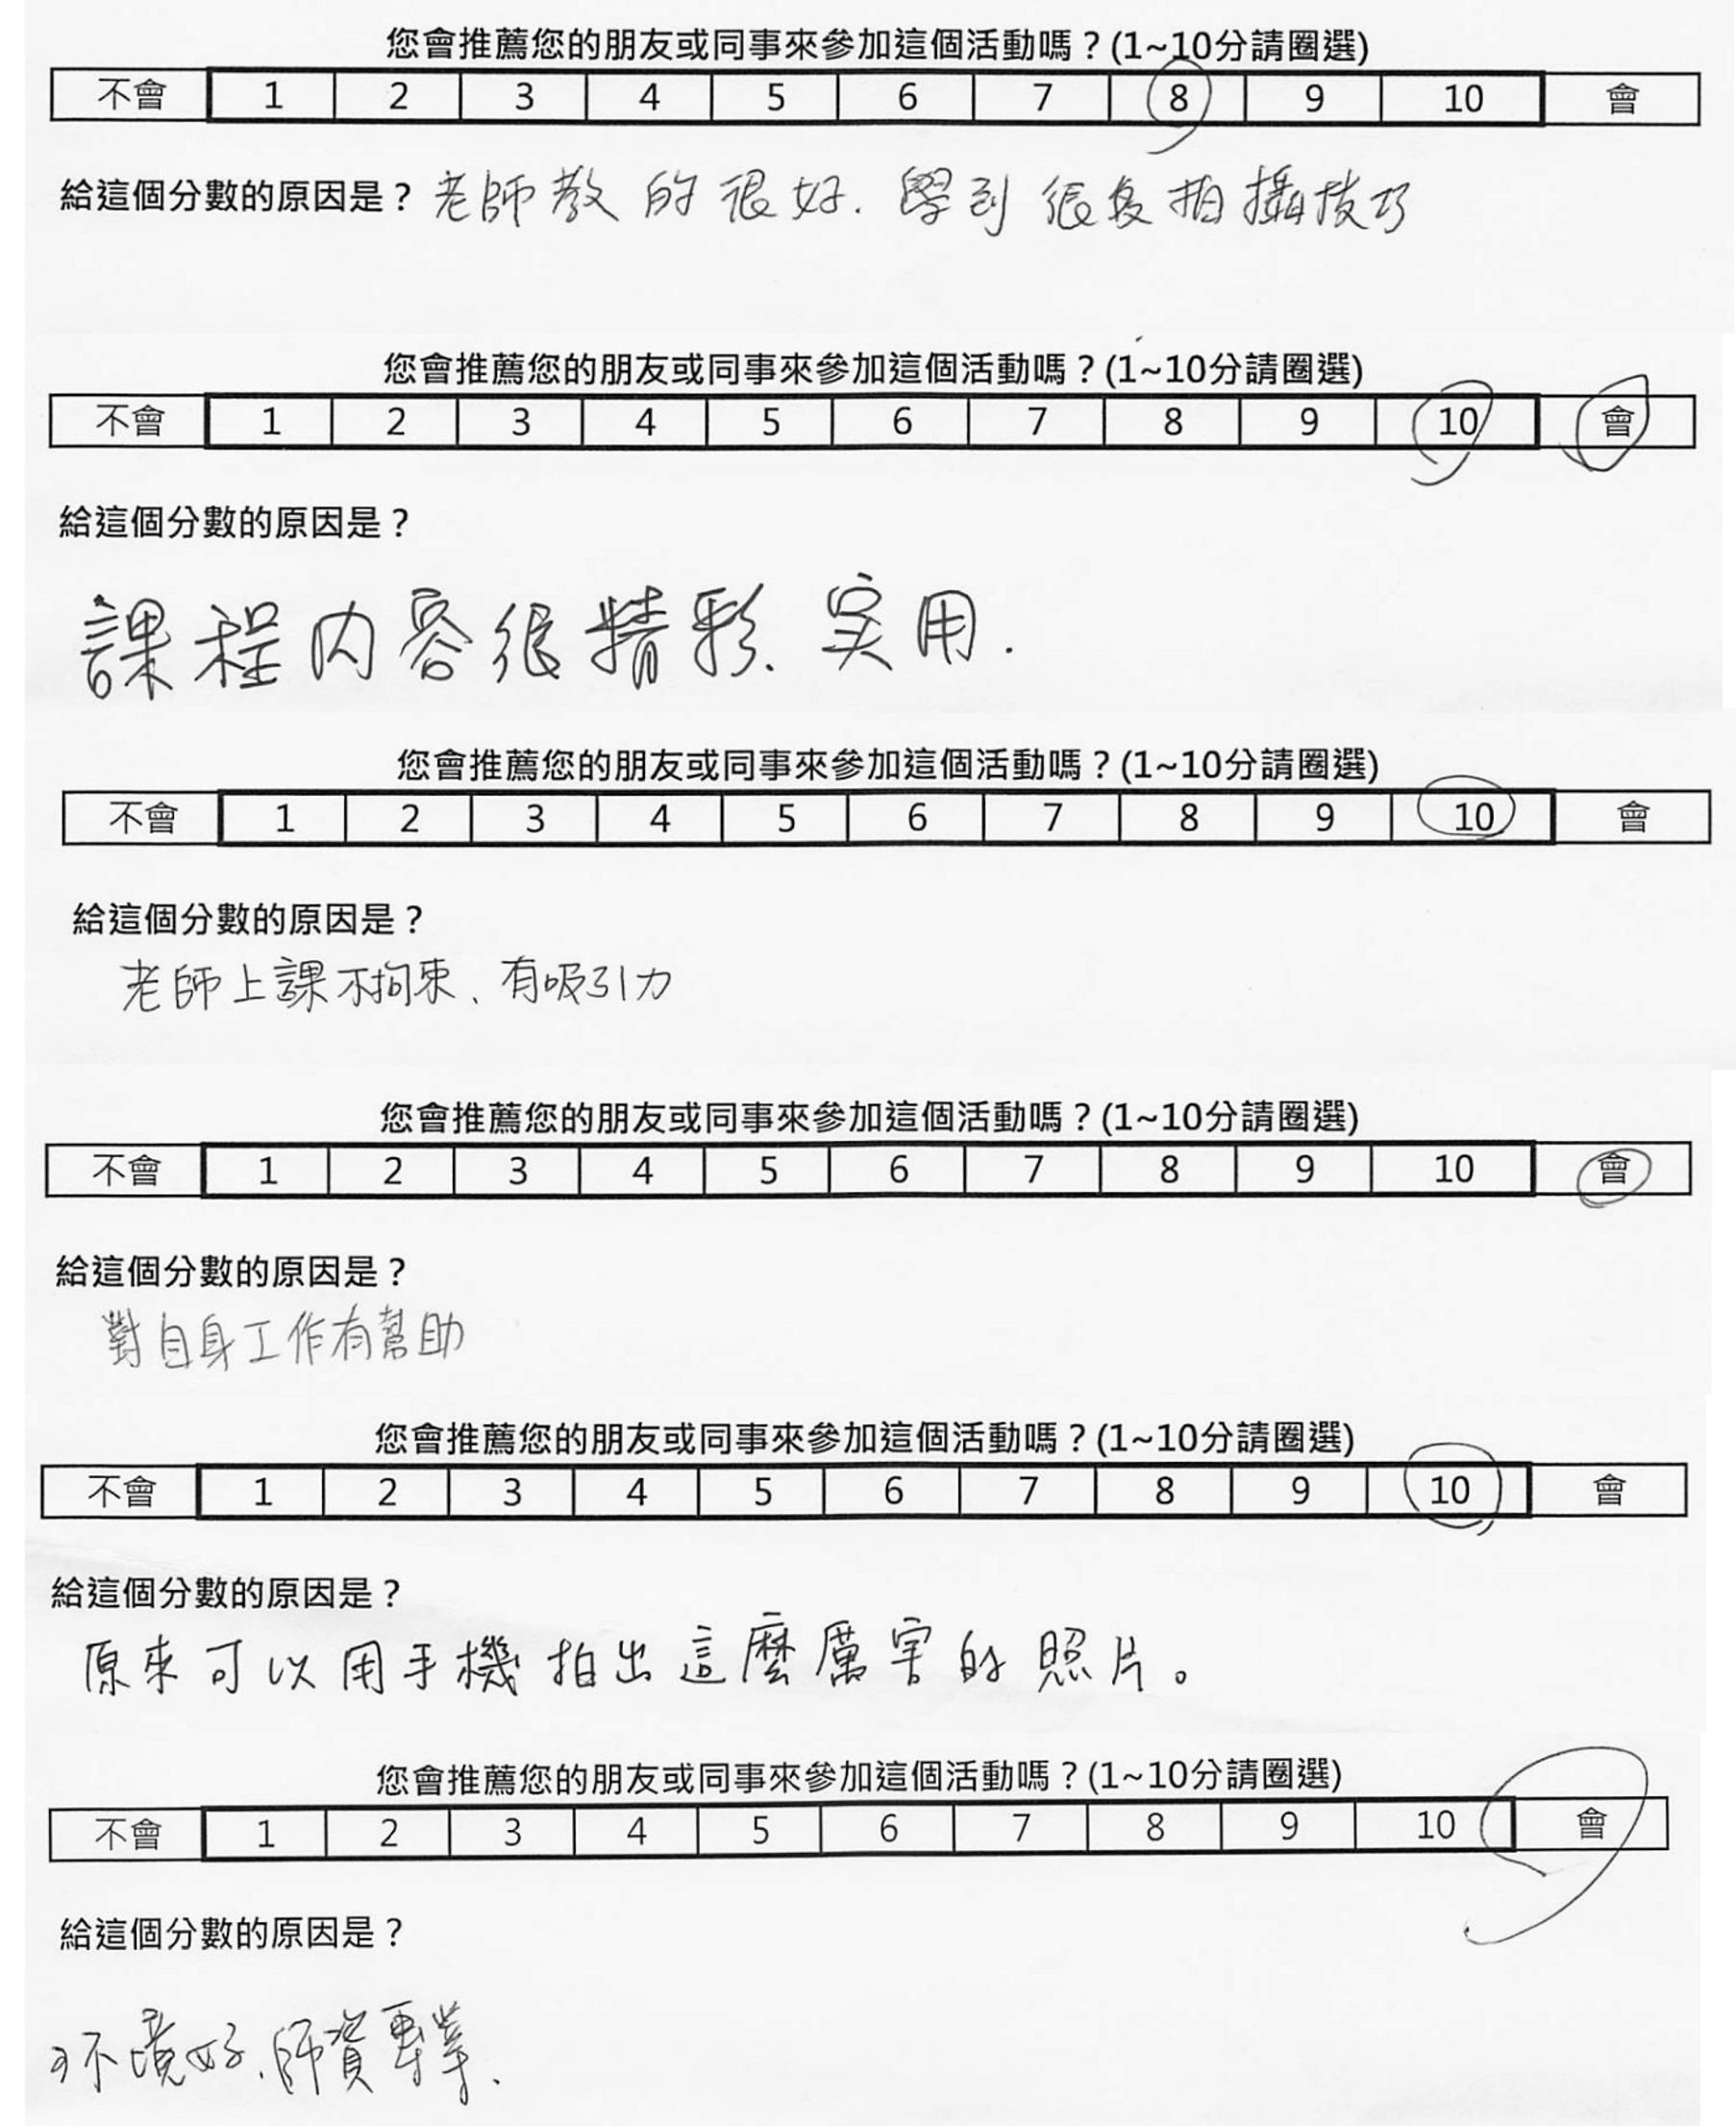 您會推薦您的朋友或同事來參加這個活動嗎？(1~10分請圈選)
不會 1 2 3 4 5 6 7 8 9 10 會
給這個分數的原因是？老師教的很好. 學到很多拍攝技巧
您會推薦您的朋友或同事來參加這個活動嗎？(1~10分請圈選)
不會 1 2 3 4 5 6 7 8 9 10 會
給這個分數的原因是？
課程內容很精彩、实用.
您會推薦您的朋友或同事來參加這個活動嗎？(1~10分請圈選)
不會 1 2 3 4 5 6 7 8 9 10 會
給這個分數的原因是？
老師上課不拘束、有吸引力
您會推薦您的朋友或同事來參加這個活動嗎？(1~10分請圈選)
不會 1 2 3 4 5 6 7 8 9 10 會
給這個分數的原因是？
對自身工作有幫助
您會推薦您的朋友或同事來參加這個活動嗎？(1~10分請圈選)
不會 1 2 3 4 5 6 7 8 9 10 會
給這個分數的原因是？
原來可以用手機拍出這麼厲害的照片。
您會推薦您的朋友或同事來參加這個活動嗎？(1~10分請圈選)
不會 1 2 3 4 5 6 7 8 9 10 會
給這個分數的原因是？
环境好、師資專業、